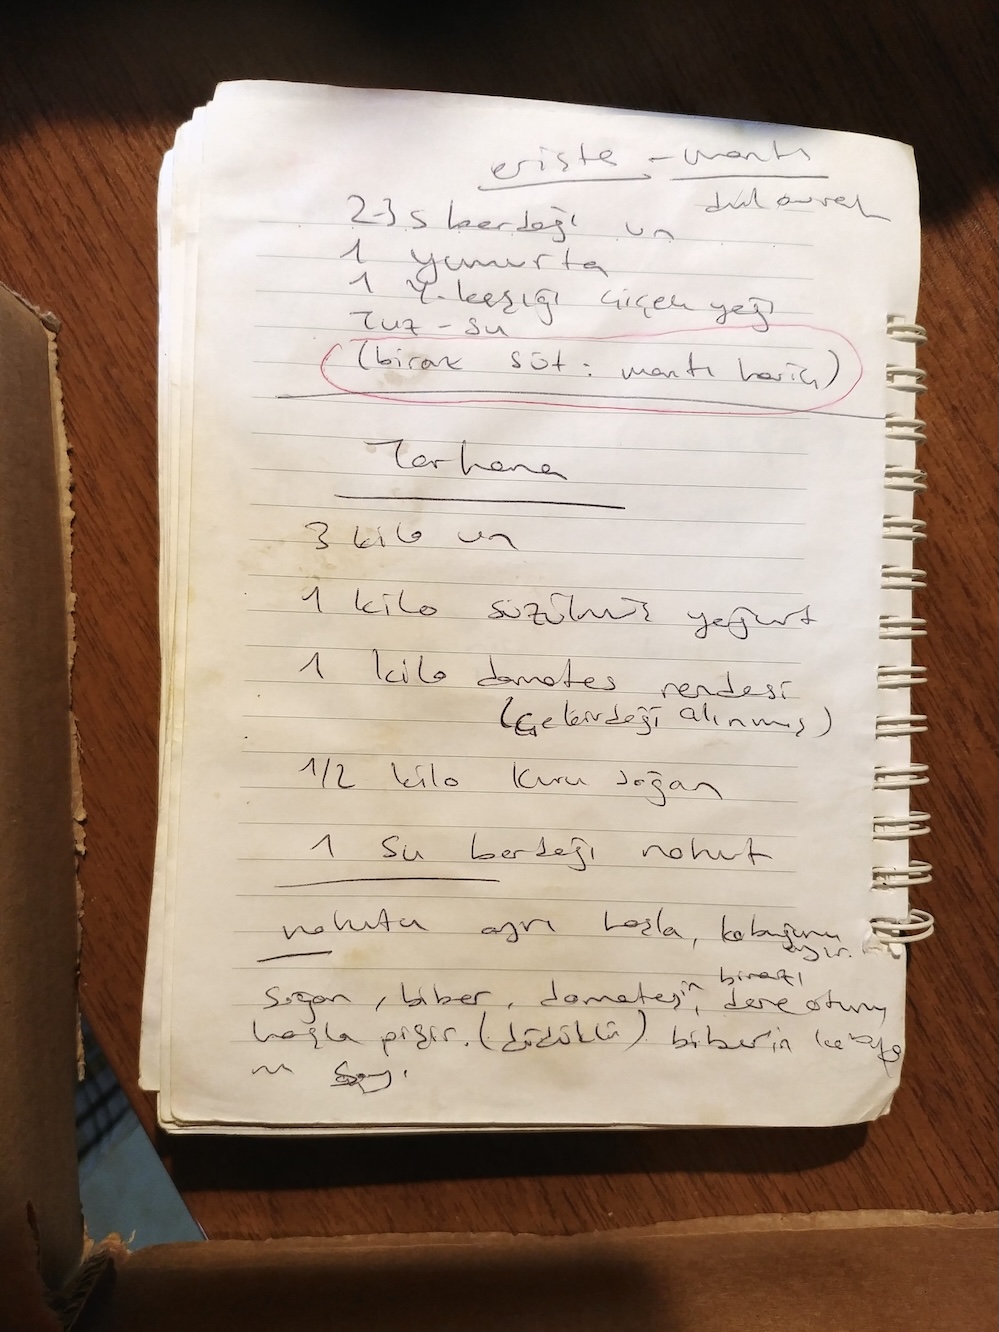 erişte - mantı
2-3 s bardağı un
1 yumurta
1 Y.kaşığı çiçek yağı
Tuz - su
(biraz süt : mantı hariç)
Tarhana
3 kilo un
1 kilo süzülmüş yoğurt
1 kilo domates rendesi
(çekirdeği alınmış)
1/2 kilo kuru soğan
1 su bardağı nohut
nohutu ayrı haşla, kabuğunu
ayır.
birazı
soğan, biber, domatesin, dereotunu
haşla pişir. (düdüklü) biberin kabuğu
nu soy.